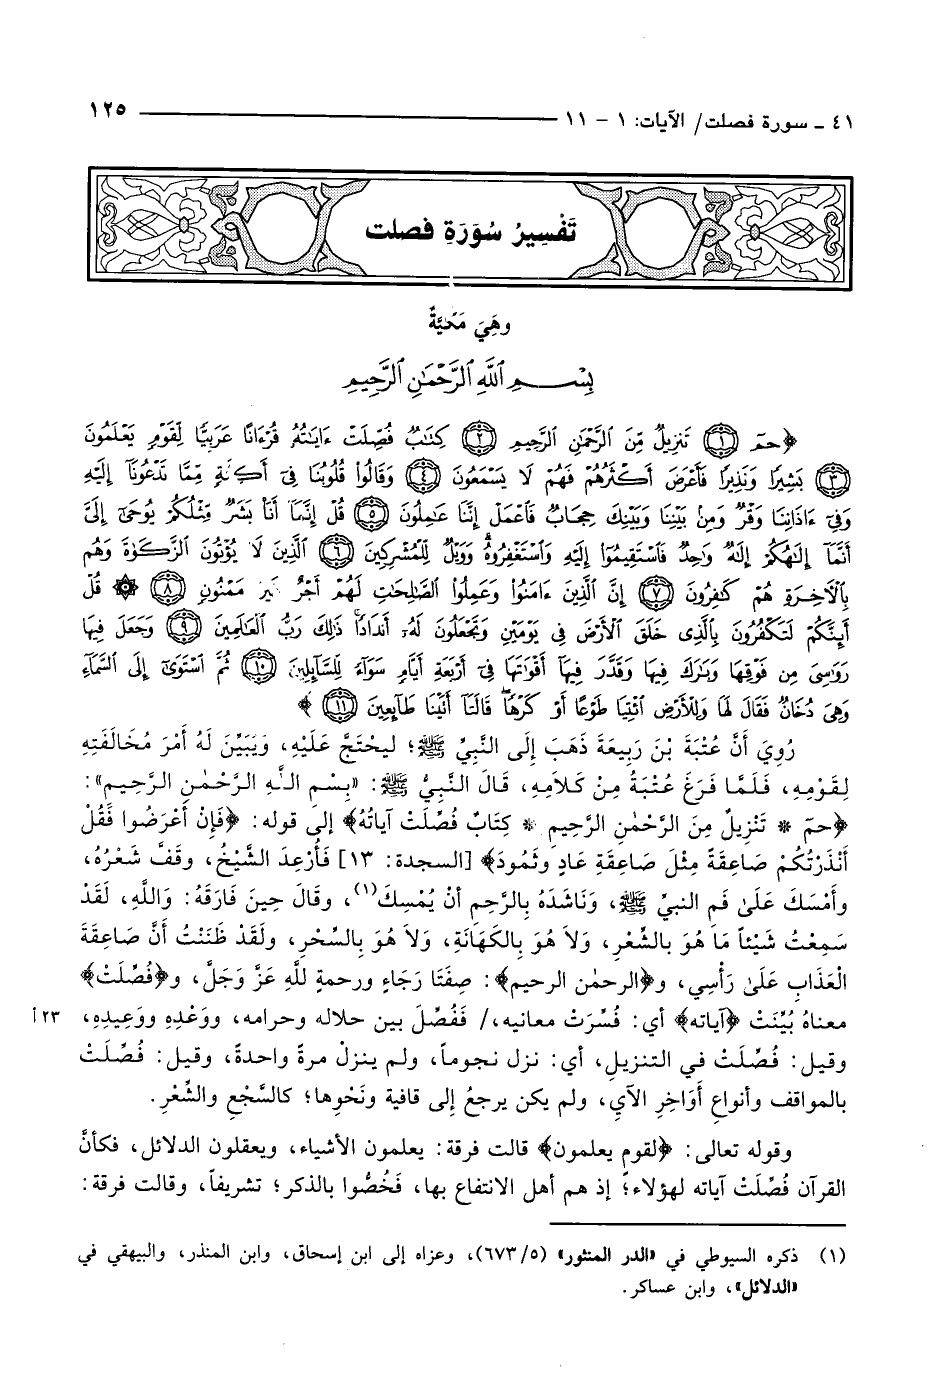 ٤١ ـ سورة فصلت/ الآيات: ١ - ١١ ١٢٥
تَفْسِيرُ سُورَةِ فصلت
وهَيَ مَكِيَّةٌ
بِسْمِ ٱللَّهِ ٱلرَّحْمَٰنِ ٱلرَّحِيمِ
﴿حمٓ ﴿١﴾ تَنزِيلٌ مِّنَ ٱلرَّحْمَٰنِ ٱلرَّحِيمِ ﴿٢﴾ كِتَٰبٌ فُصِّلَتْ ءَايَٰتُهُۥ قُرْءَانًا عَرَبِيًّا لِّقَوْمٍ يَعْلَمُونَ
﴿٣﴾ بَشِيرًا وَنَذِيرًا فَأَعْرَضَ أَكْثَرُهُمْ فَهُمْ لَا يَسْمَعُونَ ﴿٤﴾ وَقَالُوا۟ قُلُوبُنَا فِىٓ أَكِنَّةٍ مِّمَّا تَدْعُونَآ إِلَيْهِ
وَفِىٓ ءَاذَانِنَا وَقْرٌ وَمِنۢ بَيْنِنَا وَبَيْنِكَ حِجَابٌ فَٱعْمَلْ إِنَّنَا عَٰمِلُونَ ﴿٥﴾ قُلْ إِنَّمَآ أَنَا۠ بَشَرٌ مِّثْلُكُمْ يُوحَىٰٓ إِلَىَّ
أَنَّمَآ إِلَٰهُكُمْ إِلَٰهٌ وَٰحِدٌ فَٱسْتَقِيمُوٓا۟ إِلَيْهِ وَٱسْتَغْفِرُوهُ ۗ وَوَيْلٌ لِّلْمُشْرِكِينَ ﴿٦﴾ ٱلَّذِينَ لَا يُؤْتُونَ ٱلزَّكَوٰةَ وَهُم
بِٱلْءَاخِرَةِ هُمْ كَٰفِرُونَ ﴿٧﴾ إِنَّ ٱلَّذِينَ ءَامَنُوا۟ وَعَمِلُوا۟ ٱلصَّٰلِحَٰتِ لَهُمْ أَجْرٌ غَيْرُ مَمْنُونٍ ﴿٨﴾ ۞ قُلْ
أَئِنَّكُمْ لَتَكْفُرُونَ بِٱلَّذِى خَلَقَ ٱلْأَرْضَ فِى يَوْمَيْنِ وَتَجْعَلُونَ لَهُۥٓ أَندَادًا ۚ ذَٰلِكَ رَبُّ ٱلْعَٰلَمِينَ ﴿٩﴾ وَجَعَلَ فِيهَا
رَوَٰسِىَ مِن فَوْقِهَا وَبَٰرَكَ فِيهَا وَقَدَّرَ فِيهَآ أَقْوَٰتَهَا فِىٓ أَرْبَعَةِ أَيَّامٍ سَوَآءً لِّلسَّآئِلِينَ ﴿١٠﴾ ثُمَّ ٱسْتَوَىٰٓ إِلَى ٱلسَّمَآءِ
وَهِىَ دُخَانٌ فَقَالَ لَهَا وَلِلْأَرْضِ ٱئْتِيَا طَوْعًا أَوْ كَرْهًا قَالَتَآ أَتَيْنَا طَآئِعِينَ ﴿١١﴾﴾
رُوِيَ أَنَّ عُتْبَةَ بْنَ رَبِيعَةَ ذَهَبَ إِلى النَّبيِّ ﷺ؛ ليحتجَّ عَلَيْهِ، وَيَبَيِّنَ لَهُ أَمْرَ مُخَالَفَتِهِ
لِقَوْمِهِ، فَلَمَّا فَرَغَ عُتْبَةُ مِنْ كَلاَمِهِ، قَالَ النَّبِيُّ ﷺ: «بِسْمِ اللَّهِ الرَّحْمٰنِ الرَّحِيمِ»:
﴿حمّ * تَنْزِيلٌ مِنَ الرَّحْمٰنِ الرَّحِيمِ * كِتَابٌ فُصِّلَتْ آيَاتُهُ﴾ إلى قوله: ﴿فَإِنْ أَعْرَضُوا فَقُلْ
أَنْذَرْتُكُمْ صَاعِقَةً مِثْلَ صَاعِقَةِ عَادٍ وثَمُودَ﴾ [السجدة: ١٣] فَأُرْعِدَ الشَّيْخُ، وقَفَّ شَعْرُهُ،
وأَمْسَكَ عَلَىٰ فَمِ النبيِّ ﷺ، وَنَاشَدَهُ بِالرَّحِمِ أنْ يُمْسِكَ(١)، وقَالَ حِينَ فَارَقَهُ: وَاللَّهِ، لَقَدْ
سَمِعْتُ شَيْئاً مَا هُوَ بالشِّعْرِ، وَلاَ هُوَ بِالكَهَانَةِ، وَلاَ هُوَ بِالسِّحْرِ، ولَقَدْ ظَنَنْتُ أنَّ صَاعِقَةَ
الْعَذَابِ عَلَىٰ رَأْسِي، و﴿الرحمٰن الرحيم﴾: صِفَتَا رَجَاءٍ ورحمةٍ للَّهِ عَزَّ وَجَلَّ، و﴿فُصِّلَتْ﴾
معناهُ بُيِّنَتْ ﴿آياته﴾ أي: فُسِّرَتْ معانيه،/ فَفُصِّلَ بين حلاله وحرامه، ووَعْدِهِ ووَعِيدِهِ، ٢٣ أ
وقيل: فُصِّلَتْ في التنزيلِ، أي: نزل نجوماً، ولم ينزلْ مرةً واحدةً، وقيل: فُصِّلَتْ
بالمواقف وأنواعِ أَوَاخِرِ الآيِ، ولم يكن يرجعُ إلى قافية ونَحْوِها؛ كالسَّجْعِ والشِّعْرِ.
وقوله تعالى: ﴿لقوم يعلمون﴾ قالت فرقة: يعلمون الأشياء، ويعقلون الدلائل، فكأنَّ
القرآن فُصِّلَتْ آياته لهؤلاء؛ إذ هم أهل الانتفاع بها، فَخُصُّوا بالذكر؛ تشريفاً، وقالت فرقة:
(١) ذكره السيوطي في «الدر المنثور» (٥/ ٦٧٣)، وعزاه إلى ابن إسحاق، وابن المنذر، والبيهقي في
«الدلائل»، وابن عساكر.